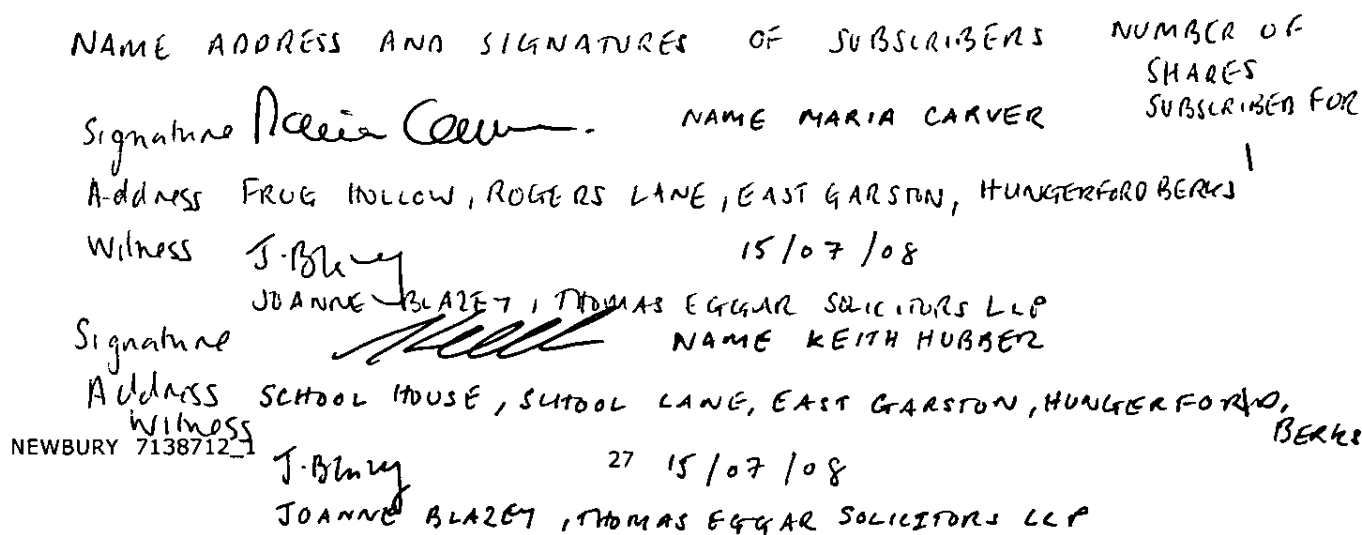 NAME ADDRESS AND SIGNATURES OF SUBSCRIBERS NUMBER OF
SHARES
SUBSCRIBED FOR
Signature Maria Carver. NAME MARIA CARVER
1
Address FROG HOLLOW, ROGERS LANE, EAST GARSTON, HUNGERFORD BERKS
Witness J. Blazey 15/07/08
JOANNE BLAZEY, THOMAS EGGAR SOLICITORS LLP
Signature NAME KEITH HUBBER
Address SCHOOL HOUSE, SCHOOL LANE, EAST GARSTON, HUNGERFORD,
BERKS
Witness
NEWBURY 7138712_1
J. Blazey 27 15/07/08
JOANNE BLAZEY, THOMAS EGGAR SOLICITORS LLP